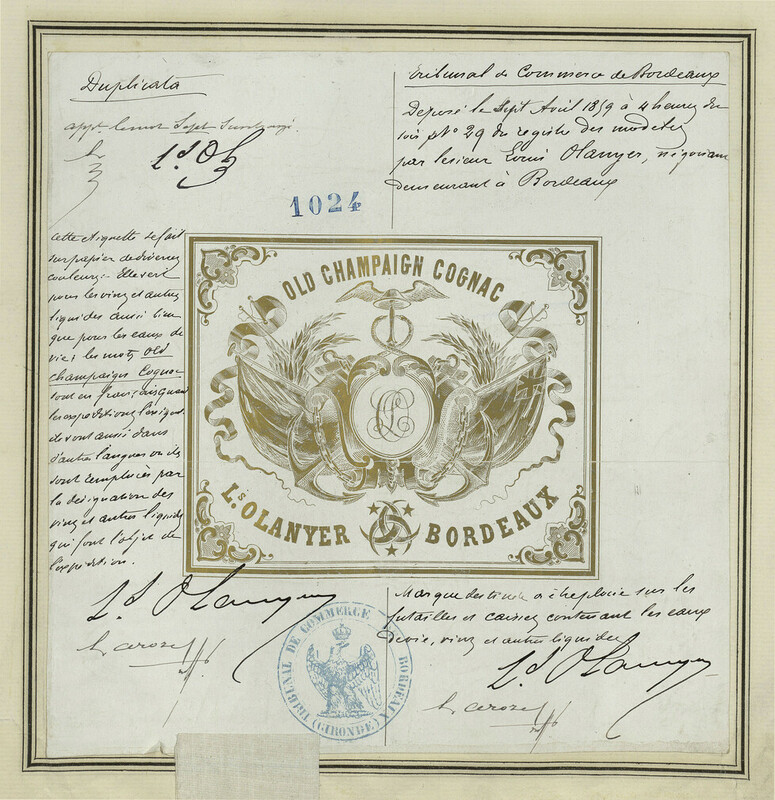 Duplicata
Tribunal de Commerce de Bordeaux
Déposé le Sept Avril 1859 à 4 heures du
soir N° 29 du registre des modèles
par le sieur Louis Olanyer, négociant
demeurant à Bordeaux
1024
cette étiquette se fait
sur papier de diverses
couleurs. Elle sert
pour les vins et autres
liquides aussi bien
que pour les eaux de
vie; les mots old
champaign Cognac
sont en français quand
les expéditions l'exigent
ils sont aussi dans
d'autres langues ou ils
sont remplacés par
la désignation des
vins et autres liquides
qui font l'objet de
l'expédition.
OLD CHAMPAIGN COGNAC
Ls OLANYER BORDEAUX
Ls Olanyer
TRIBUNAL DE COMMERCE BORDEAUX (GIRONDE)
Marque destinée a être placée sur les
futailles et caisses contenant les eaux
de vie, vins et autres liquides
Ls Olanyer